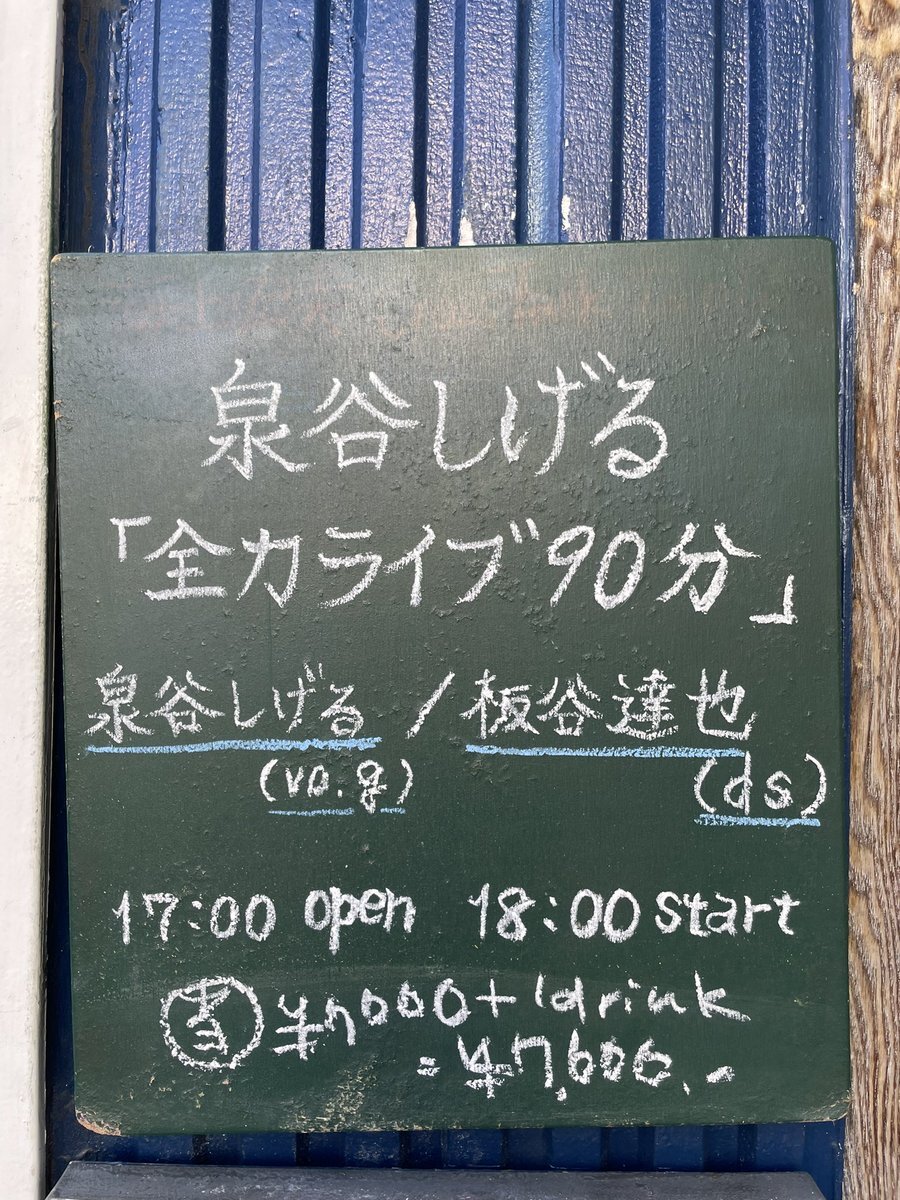 泉谷しげる
「全力ライブ90分」
泉谷しげる / 板谷達也
(vo.g) (ds)
17:00 open 18:00 start
¥7000+1drink
=¥7,600.-